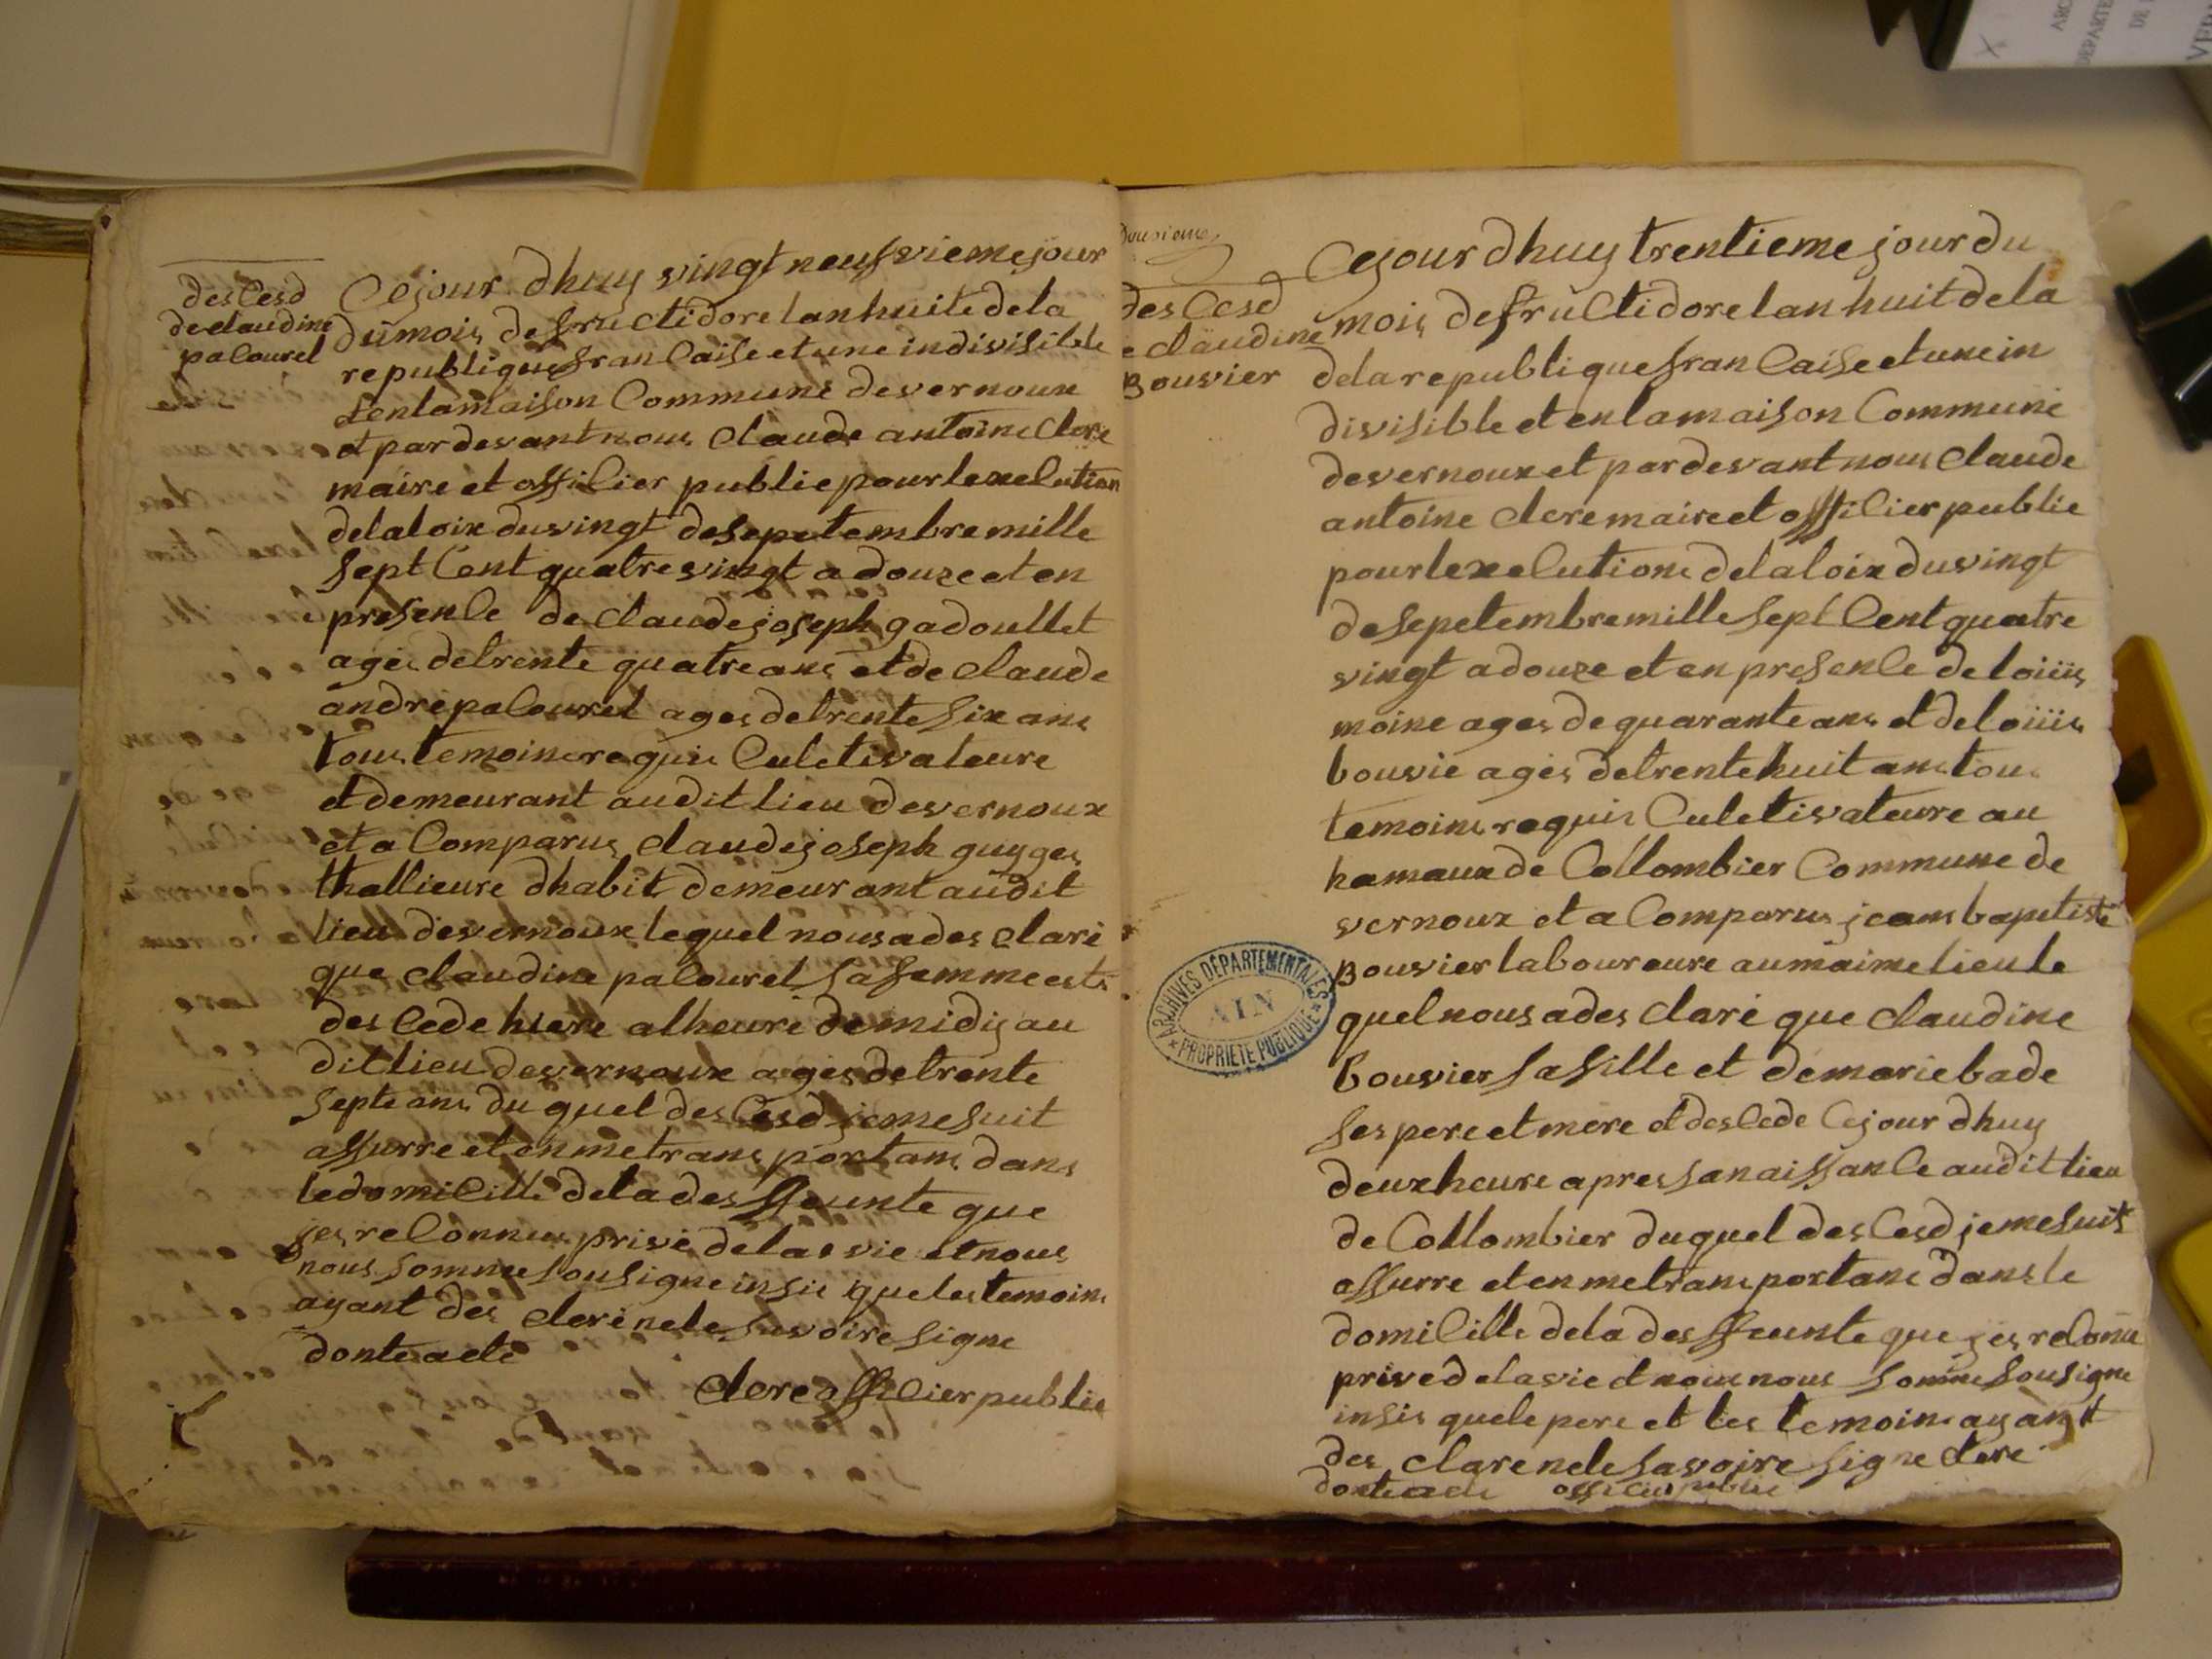 desCesd
de claudine
paCourel
Cejour dhuy vingt neufvieme jour
du mois de fructidore lan huite de la
republique franCaise et une indivisible
& en la maison Commune de vernoux
et par devant nous Claude antoine Clere
maire et offiCier public pour lexeCution
de la loix du vingt de sepetembre mille
sept Cent quatre vingt a douze et en
presenCe de Claude joseph gadoullet
ages de trente quatre ans et de Claude
andre paCourel ages de trente six ans
tous temoins requis Culetivateure
et demeurant audit lieu de vernoux
et a Comparus Claude joseph guyges
thallieure dhabit demeurant audit
lieu de vernoux lequel nous a des Clare
que Claudine paCourel sa femme est
des Cede hiere a lheure de midij au
dit lieu de vernoux ages de trente
septe ans du quel des Cesd je me suit
assurre et en me transportans dans
le domiCille de la des ffeunte que
jes reConnus prive de las vie et nous
nous somme sousigne insis que les temoins
ayant des Clere ne le savoire signe
donte acte
Clere offiCier public
Dousieme
des Cesd
e Claudine
Bouvier
Cejour dhuy trentieme jour du
mois de fructidore lan huit de la
de la republique franCaise et une in
divisible et en la maison Commune
de vernoux et par devant nous Claude
antoine Clere maire et offiCier public
pour lexeCution de la loix du vingt
de sepetembre mille sept Cent quatre
vingt a douze et en presenCe de loiiis
moine ages de quarante ans et de loiiis
bouvie ages de trente huit ans tous
temoins requis Culetivateure au
hamaux de Collombier Commune de
vernoux et a Comparus jeans bapetiste
Bouvier laboureure au maime lieu le
quel nous a des Clare que Claudine
bouvier sa fille et de marie bade
ses pere et mere et des Cede Cejour dhuy
deux heure apres sa naissanCe audit lieu
de Collombier du quel des Cesd je me suit
assurre et en me transportans dans le
domiCille de la des ffeunte que jes reConnu
prive de la vie et nous nous somme sousigne
insis que le pere et les temoins ayangt
des Clare ne le savoire signe Clere
donte acte offiCier public
ARCHIVES DÉPARTEMENTALES
AIN
PROPRIETE PUBLIQUE